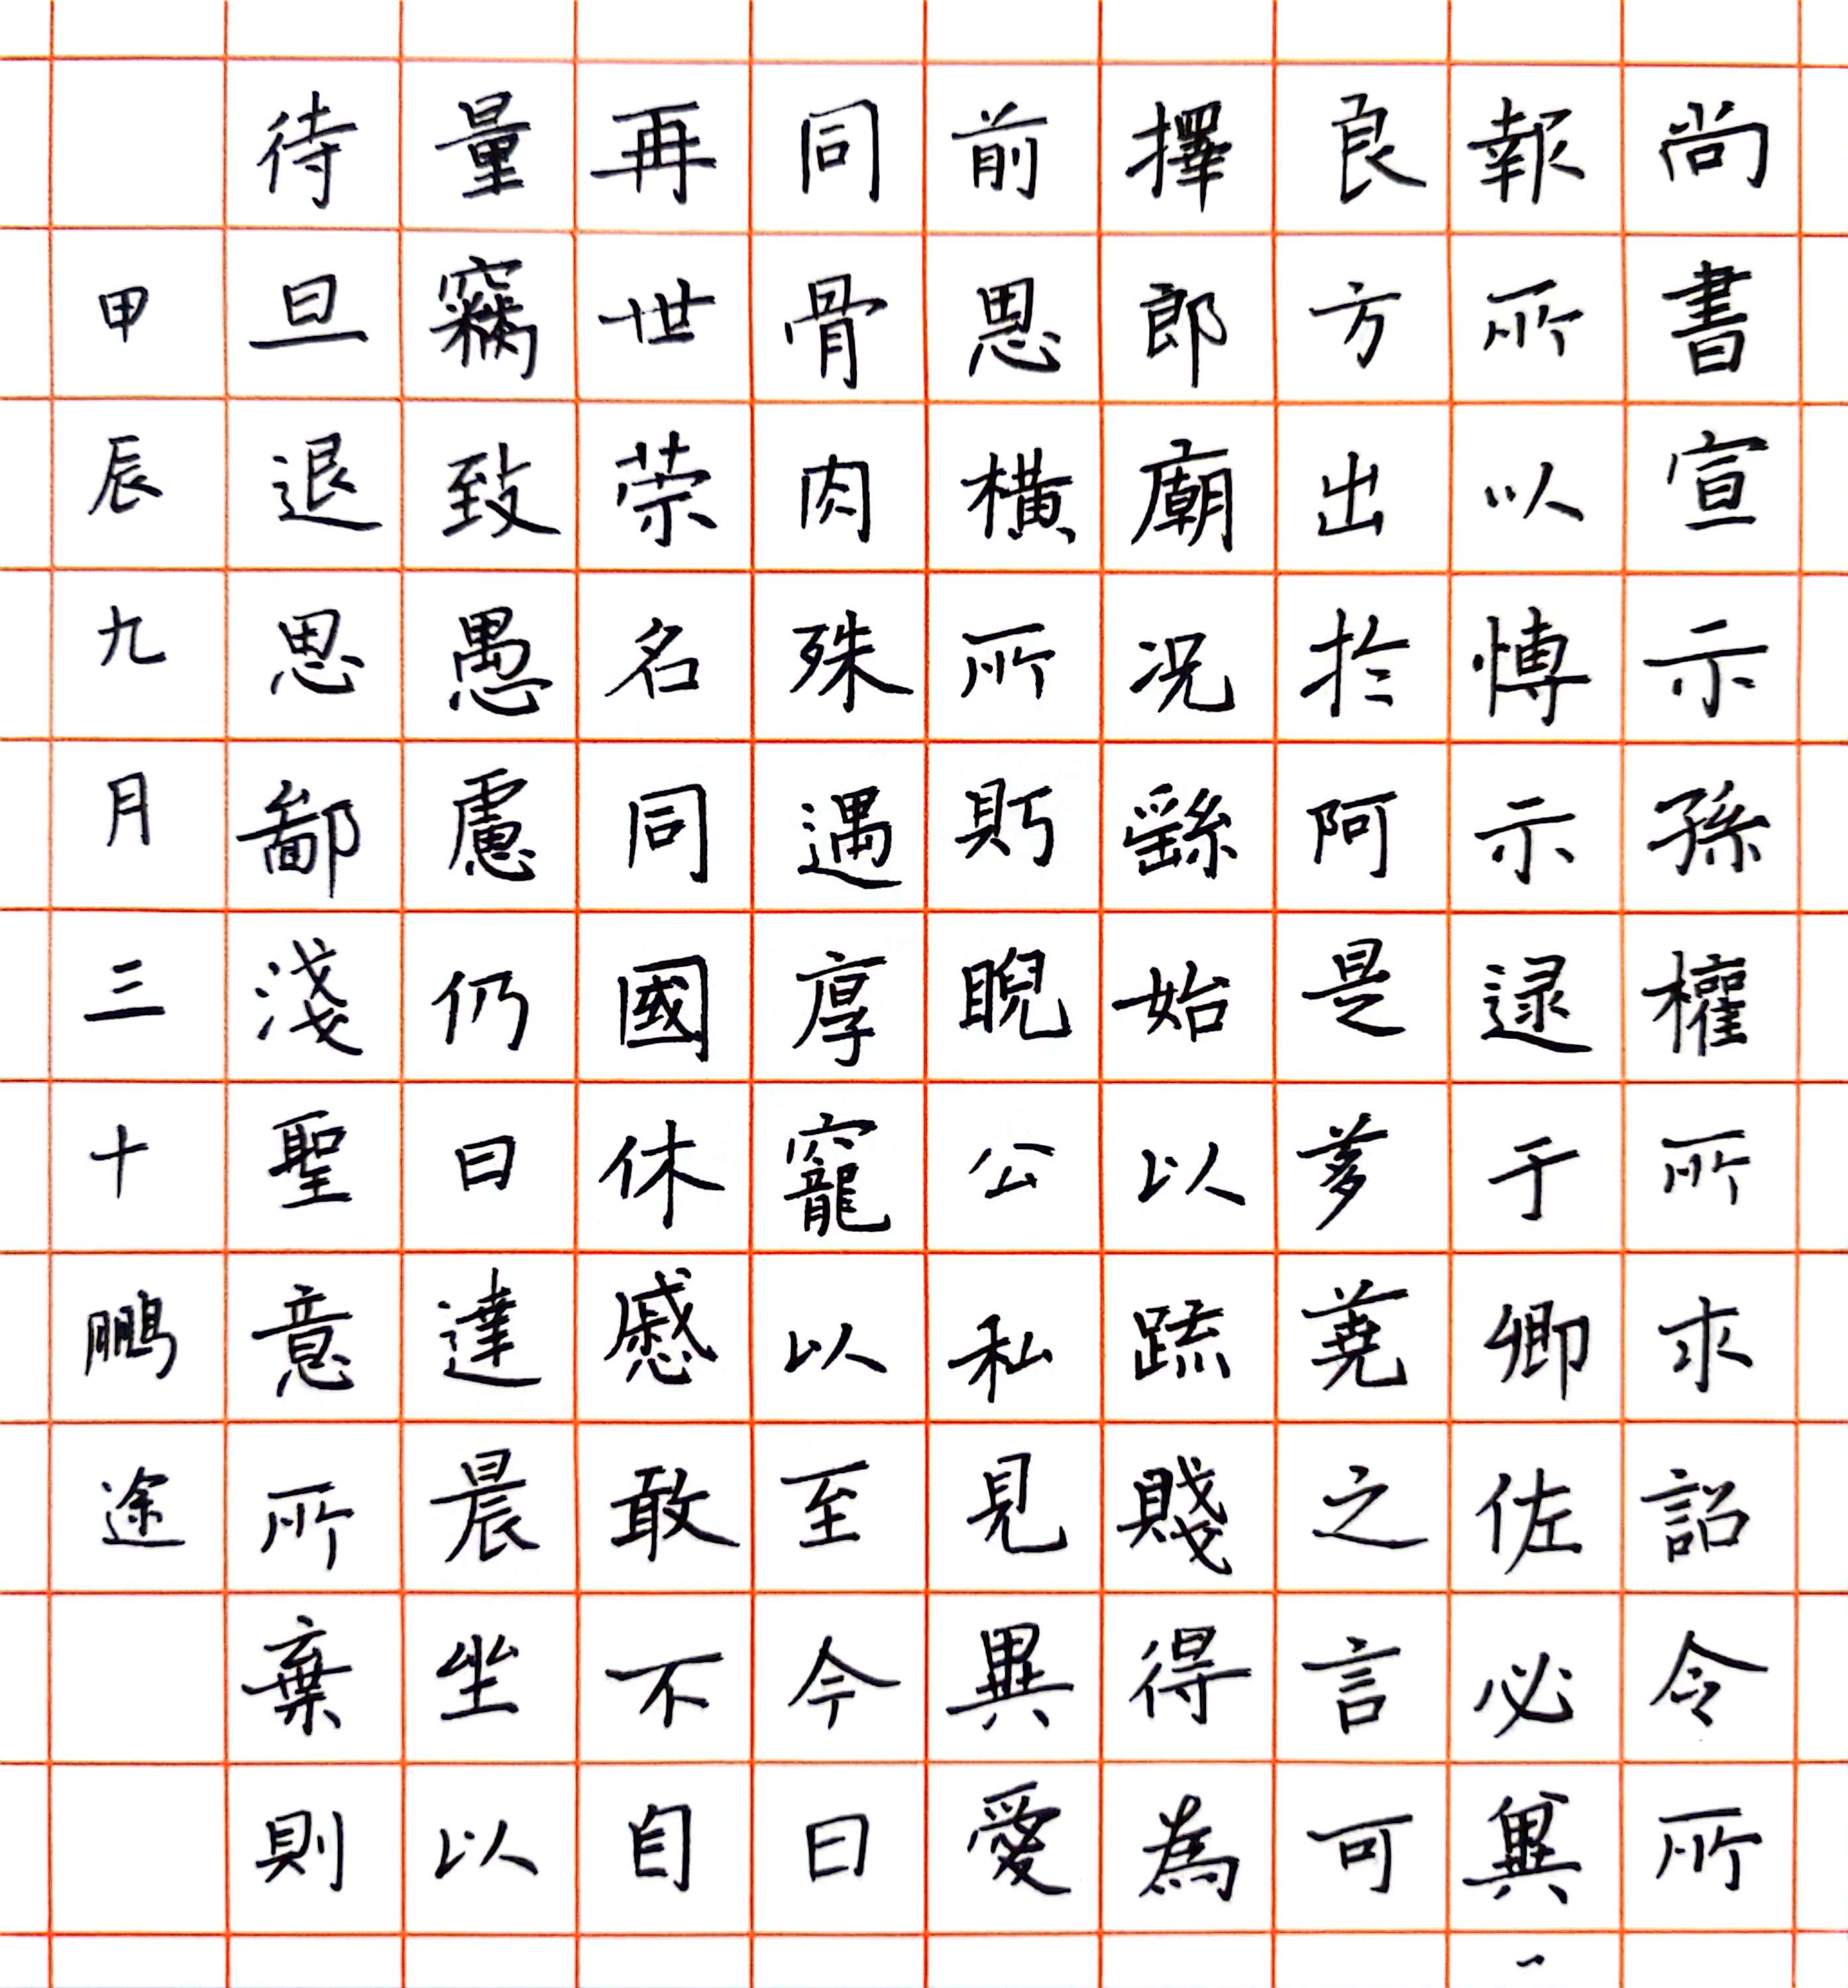 尚書宣示孫權所求詔令所
報所以博示逮于卿佐必冀
良方出於阿是芻蕘之言可
擇郎廟況繇始以疏賤得為
前恩橫所盻睨公私見異愛
同骨肉殊遇厚寵以至今日
再世荣名同國休慼敢不自
量竊致愚慮仍日達晨坐以
待旦退思鄙淺聖意所棄則
甲辰九月三十鵬途